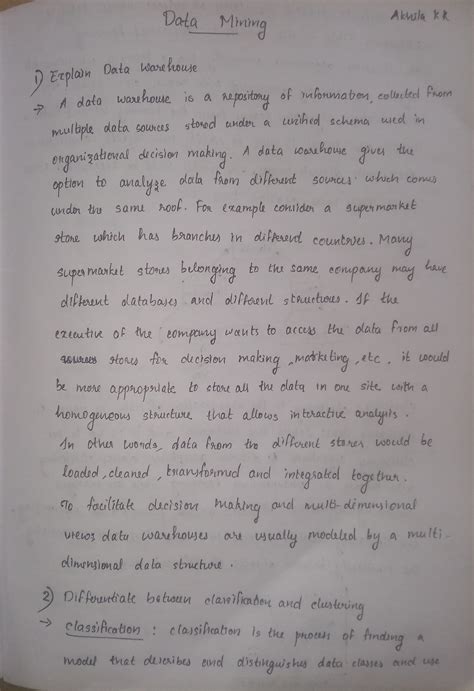 Data Mining
Akhila K R
1) Explain Data Warehouse
→ A data warehouse is a repository of information, collected from
multiple data sources stored under a unified schema used in
organizational decision making. A data warehouse gives the
option to analyze data from different sources which comes
under the same roof. For example consider a supermarket
store which has branches in different countries. Many
supermarket stores belonging to the same company may have
different databases and different structures. If the
executive of the company wants to access the data from all
sources stores for decision making, marketing, etc, it would
be more appropriate to store all the data in one site with a
homogeneous structure that allows interactive analysis.
In other words, data from the different stores would be
loaded, cleaned, transformed and integrated together.
To facilitate decision making and multi-dimensional
views data warehouses are usually modeled by a multi-
dimensional data structure.
2) Differentiate between classification and clustering
→ classification : classification is the process of finding a
model that describes and distinguishes data classes and use